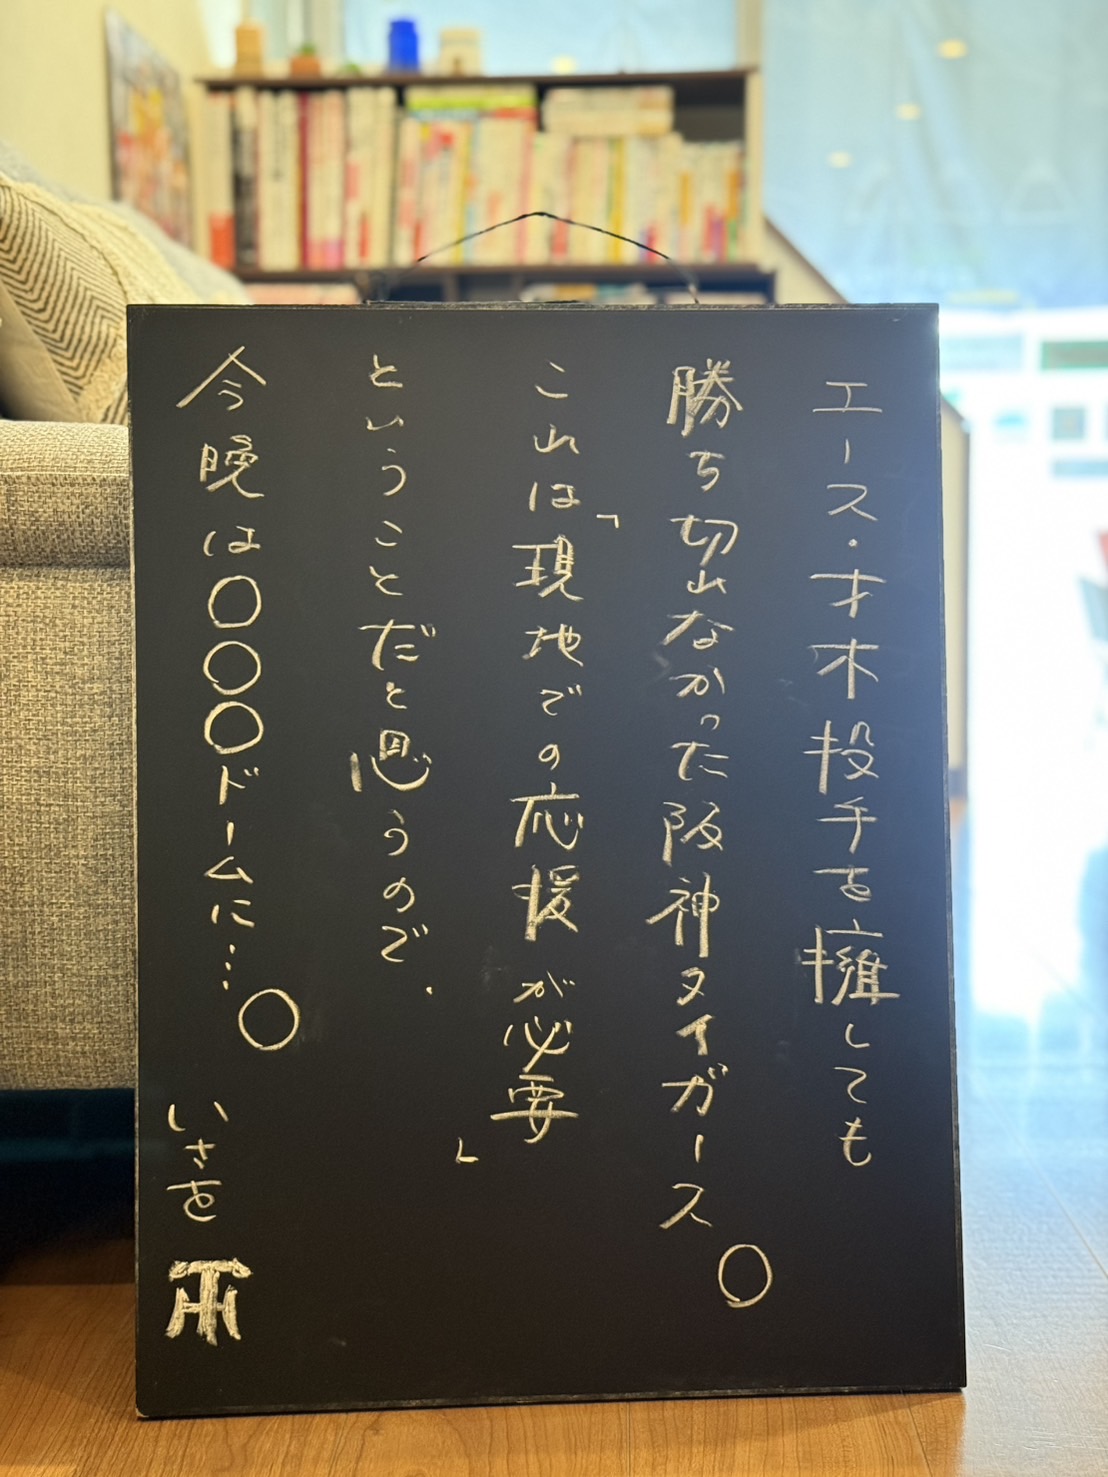 エース・才木投手を擁しても
勝ち切れなかった阪神タイガース。
これは「現地での応援が必要」
ということだと思うので、
今晩は〇〇〇ドームに…。
いさを